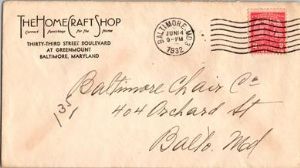 THE HOME CRAFT SHOP
Correct Furnishings for the Home
THIRTY-THIRD STREET BOULEVARD
AT GREENMOUNT
BALTIMORE, MARYLAND
BALTIMORE, MD. 3
JUN 14
6-PM
1932
135
Baltimore Chair Co
404 Orchard St
Balto. Md